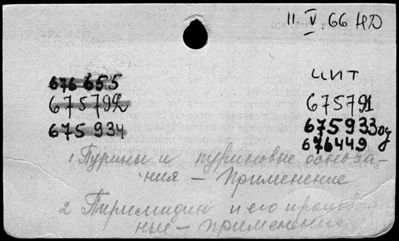 11. V. 66 НО
676655
цит
675792
675791
675934
675933од
676449
1 Пурины и пуриновые основа-
ния – Применение
2 Пиримидин и его производ-
ные – применение